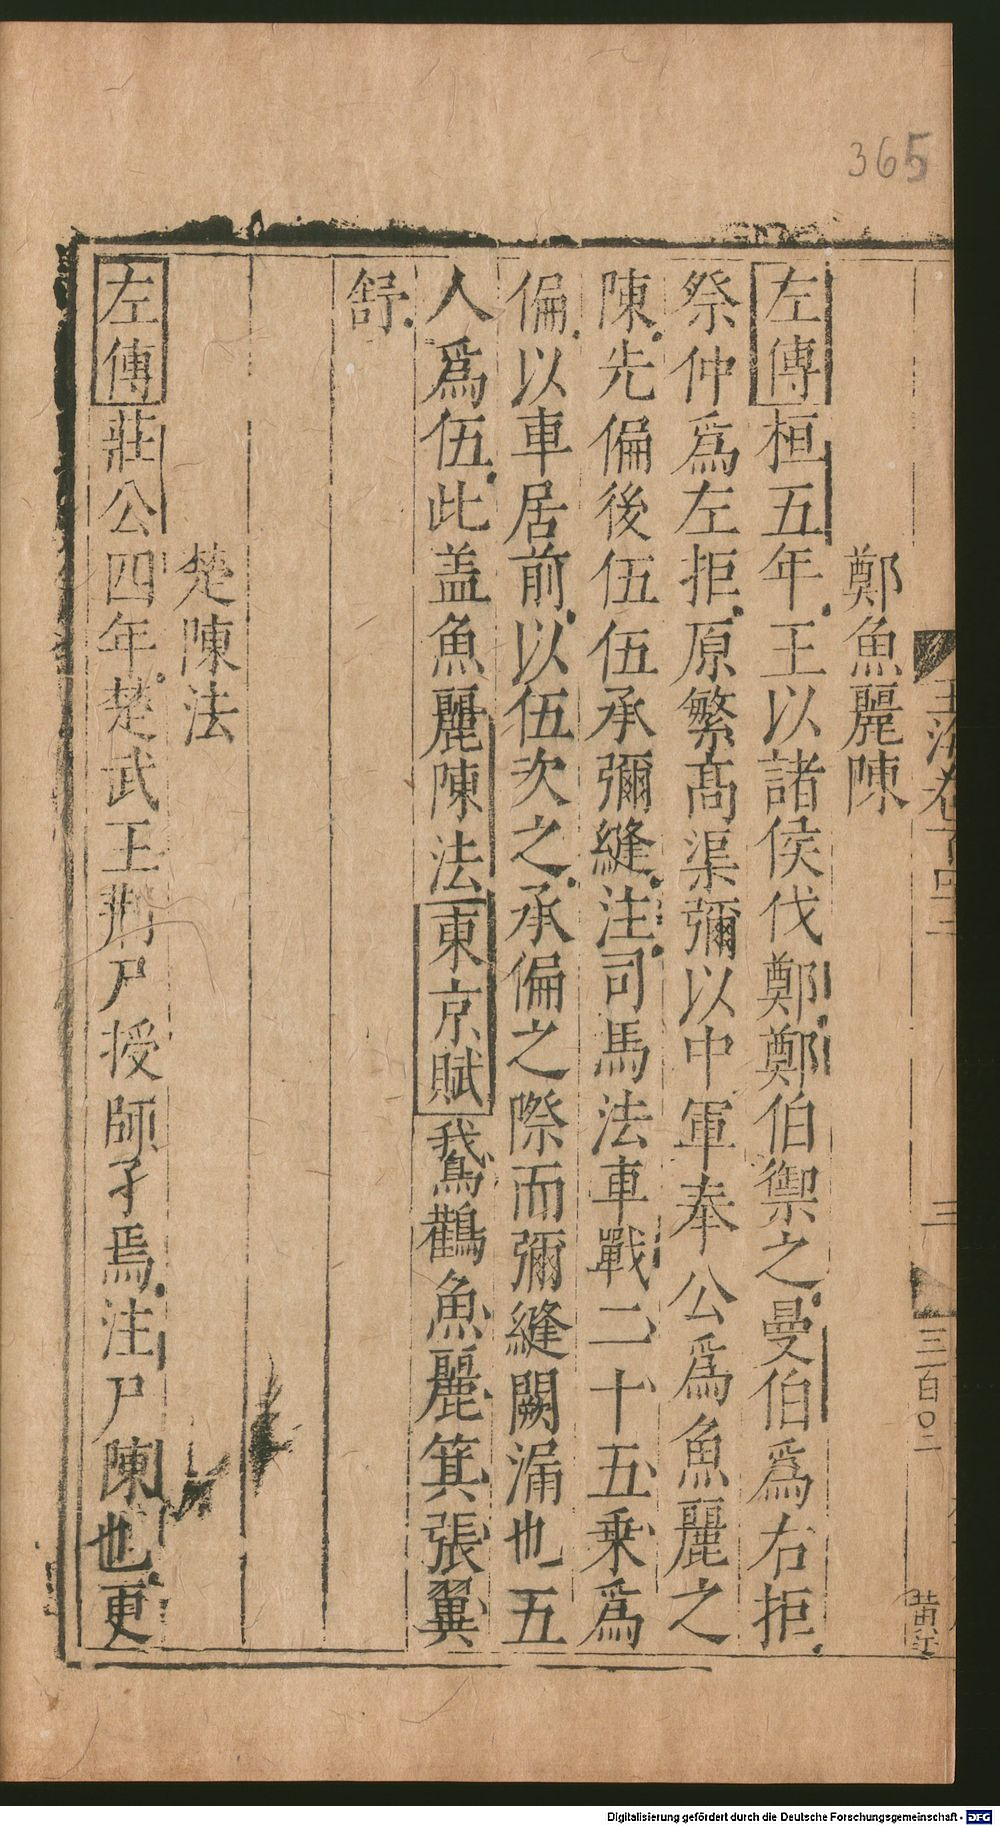 365
玉海卷百四二
三
三百〇二
鄭魚麗陳
左傳桓五年王以諸侯伐鄭鄭伯禦之曼伯爲右拒
祭仲爲左拒原繁高渠彌以中軍奉公爲魚麗之
陳先偏後伍伍承彌縫注司馬法車戰二十五乗爲
偏以車居前以伍次之承偏之際而彌縫闕漏也五
人爲伍此盖魚麗陳法東京賦鵞鸛魚麗箕張翼
舒
楚陳法
左傳莊公四年楚武王荆尸授師孑焉注尸陳也更
Digitalisierung gefördert durch die Deutsche Forschungsgemeinschaft - DFG